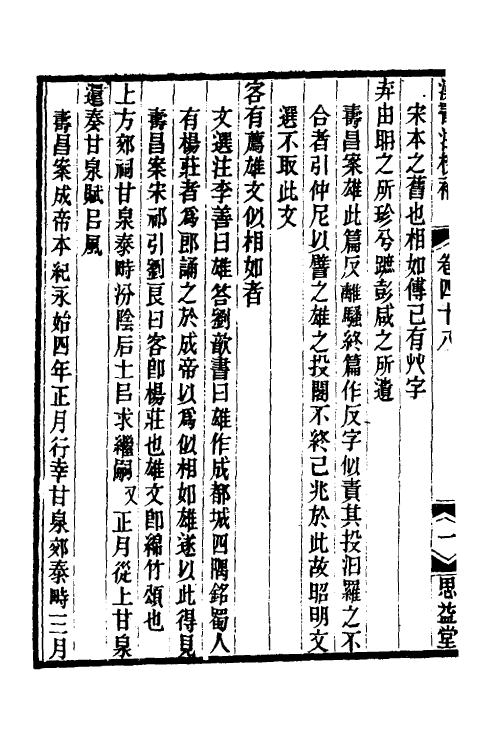 漢書注校補　卷四十八　一　思益堂
宋本之舊也相如傳已有艸字
弃由聃之所珍兮蹠彭咸之所遺
壽昌案雄此篇反離騷終篇作反字似責其投汨羅之不
合者引仲尼以譬之雄之投閣不終已兆於此故昭明文
選不取此文
客有薦雄文似相如者
文選注李善曰雄答劉歆書曰雄作成都城四隅銘蜀人
有楊莊者爲郎誦之於成帝以爲似相如雄遂以此得見
壽昌案宋祁引劉良曰客卽楊莊也雄文卽綿竹頌也
上方郊祠甘泉泰畤汾陰后土㠯求繼嗣又正月從上甘泉
還奏甘泉賦㠯風
壽昌案成帝本紀永始四年正月行幸甘泉郊泰畤三月